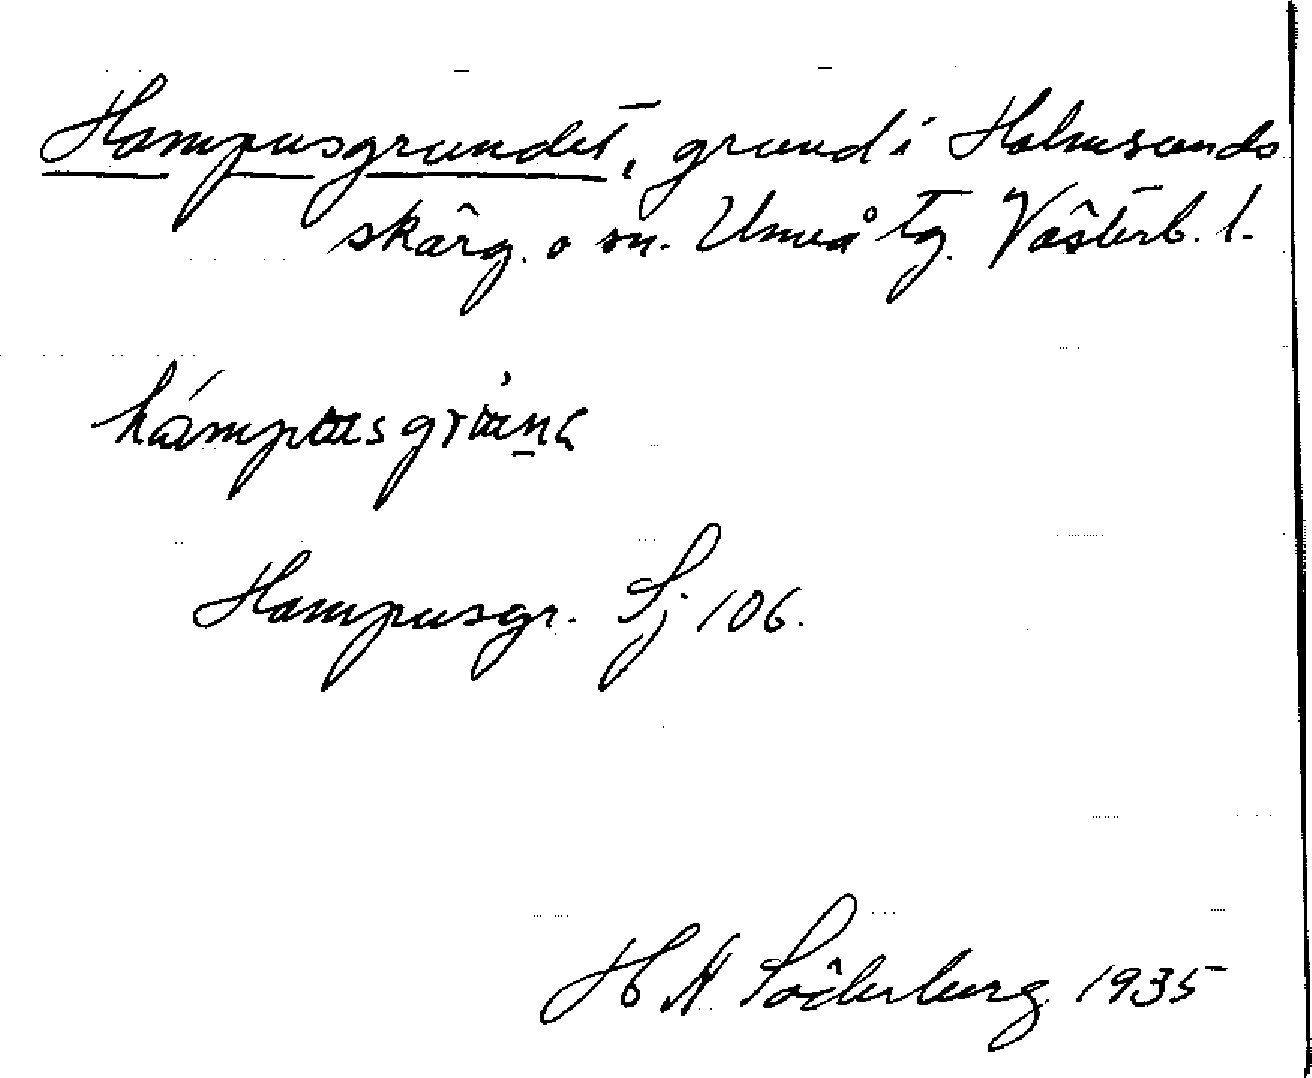 Hampusgrundet, grund i Holmsunds
skärg. o sn. Umeå tg. Västerb. l.
Hampusgr. Sj 106.
H N. Söderberg 1935